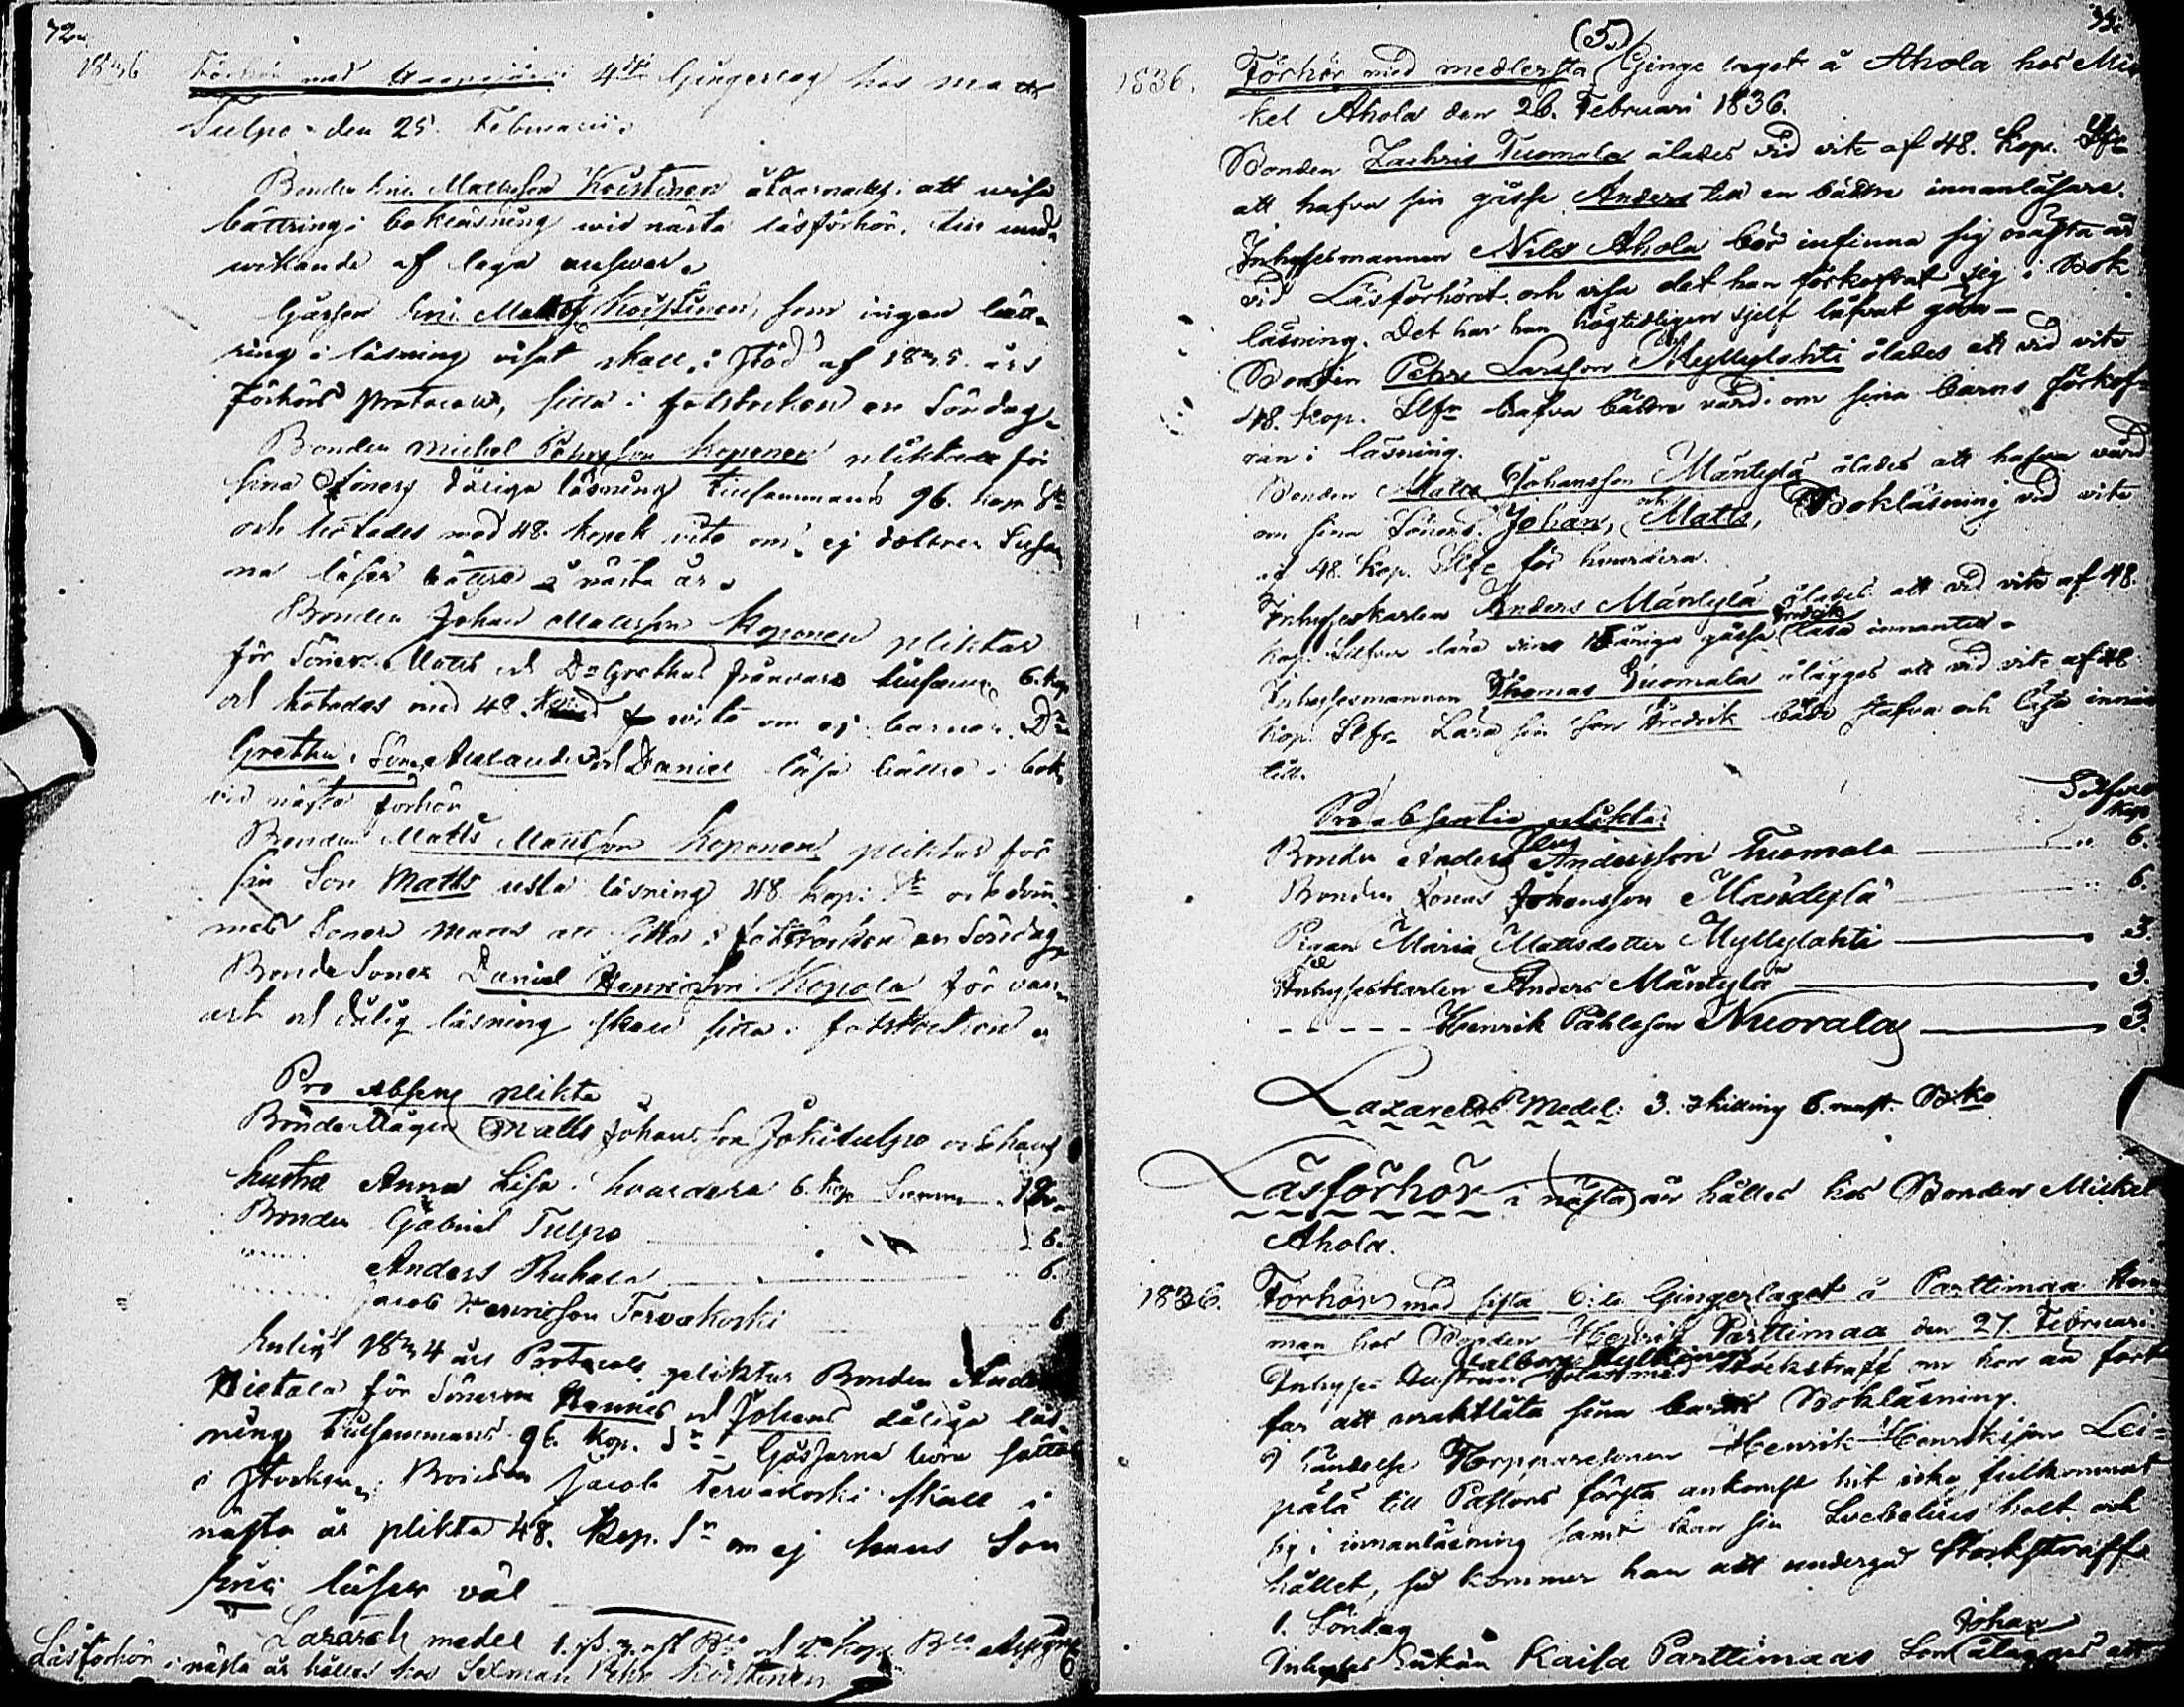 72.
1836 Förhör med Haapajärvi 4de Gingerlag hos Matts
Tulpo den 25. Februarii.
Bonden Eric Mattsson Koistinen åtvarnades att wisa
bättring i bokläsning wid nästa läsförhör, till und-
wikande af laga answar.
Gossen Eric Mattss. Koistinen, som ingen bätt-
ring i läsning visat skall, i stöd af 1835 års
Förhörs protocoll, sitta i fotstocken en Söndag.
Bonden Michel Pehrsson Koponen pliktade för
sina Söners dåliga läsning tillsammans 96. kop. Sr
och hotades med 48. kopek vite om ej dottren Susan-
na läser bättre nästa år.
Bonden Johan Mattsson Koponen pliktar
för Sönen Matts och Dr Grethas frånvaro tillsam. 6. kop
och hotades med 48. kop. vite om ej barnen Dr
Gretha, Söner och Daniel läsa bättre i bok
vid nästa förhör
Bonden Matts Mattsson Koponen pliktar för
sin Son Matts usla läsning 48 kop. Sr och döm-
mes Sonen Matts att sitta i fotstocken en Söndag.
Bonde Sonen Daniel Henricsson Kopola för van-
art och dålig läsning skall sitta i fotstocken
Pro absentia plikta
Bonde Mågen Matts Johansson Jokitulpo och hans
hustru Anna Lisa hvardera 6. kop Summa 12.
Bonden Gabriel Tulpo 6.
Anders Ruhala 6.
Jacob Henricsson Tervakoski 6
Enligt 1834 års Protocoll pliktar Bonden Anders
Pietala för Sönerna Hannes och Johans dåliga läs-
ning tillsammans 96. kop. Sr Gossarna böra sättas
i stocken. Bonden Jacob Tervakoski skall i
nästa år plikta 48. kop. Sr om ej hans Son
Eric läser väl
Lazaretts medel
Läsförhör i nästa år hålles hos Sexman Pehr Koistinen
33.
(5.)
1836. Förhör med medlersta Ginge laget å Ahola hos Mic-
kel Ahola den 26. Februari 1836.
Bonden Zachris Tuomala ålades vid vite af 48. kop. Slfr
att hafva sin gåsse Anders till en bättre innanläsare.
Inhysesmannen Nils Ahola bör infinna sig nästa år
vid Läsförhöret och visa det han förkofrat sig i Bok
läsning. Det har han högtidligen sjelf låfvat göra-
Bonden Pehr Larsson Myllylahti ålades att vid vite
48. kop. Slfr hafva bättre vård om sina barns förkof-
ran i läsning.
Bonden Matts Johansson Mäntylä ålades att hafva vård
om sina Söners Johan, och Matts, Bokläsning vid vite
af 48. kop. Slfr för hvardera.
Inhyseskarlen Anders Mäntylä ålades att vid vite af 48.
kop. Silfver lära sin åriga gåsse Fredrik läsa innantill-
Inhysesmannen Thomas Tuomala ålägges att vid vite af 48
kop. Slfr Lära sin Son Fredrik både stafva och läsa innan
till.
Silfver
kop
Pro absentia plikta
Bonden Anders Andersson Tuomala 6.
Bonden Jonas Johansson Mäntylä 6.
Pigan Maria Mattsdotter Myllylahti 3.
Inhyseskarlen Anders Mäntylä 3.
- - - - - Henrik Påhlsson Nuorala 3.
Lazaretts Medel: 3. skilling 6. runst. Bko
Läsförhör i nästa år hålles hos Bonden Mickel
Ahola.
1836. Förhör med sista 6:te Gingerlaget å Parttimaa Hem-
man hos Bonden Henrik Parttimaa den 27. Februari
Inhyses hotas med Stockstraff om hon än fort-
far att uraktlåta sina barns Bokläsning.
I händelse Henrik Henriksson Lei-
pälä till Pastors första ankomst hit icke fullkomnat
sig i innanläsning samt kan sin Lucbelius helt och
hållet, så kommer han att undergå Stockstraff
1. Söndag
Inhyses Enkan Kaisa Parttimaas Son Johan ålägges att